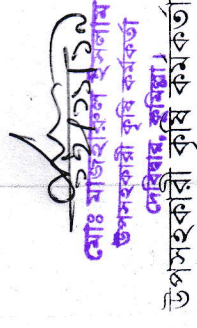 মোঃ মাজহারুল ইসলাম
উপসহকারী কৃষি কর্মকর্তা
দেবিদ্বার, কুমিল্লা।
উপসহকারী কৃষি কর্মকর্তা